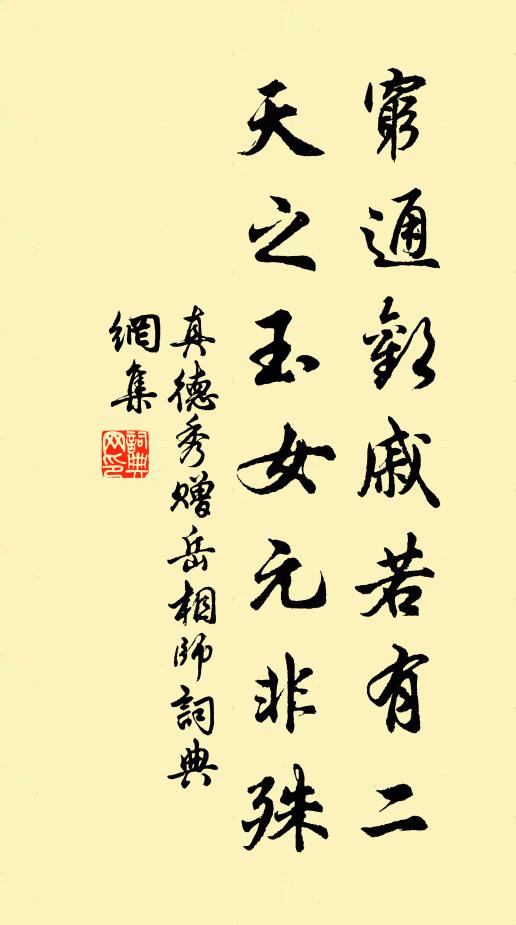 窮通歡戚若有二
天之玉女元非殊
真德秀贈岳相師詞典
網集
詞典
网印